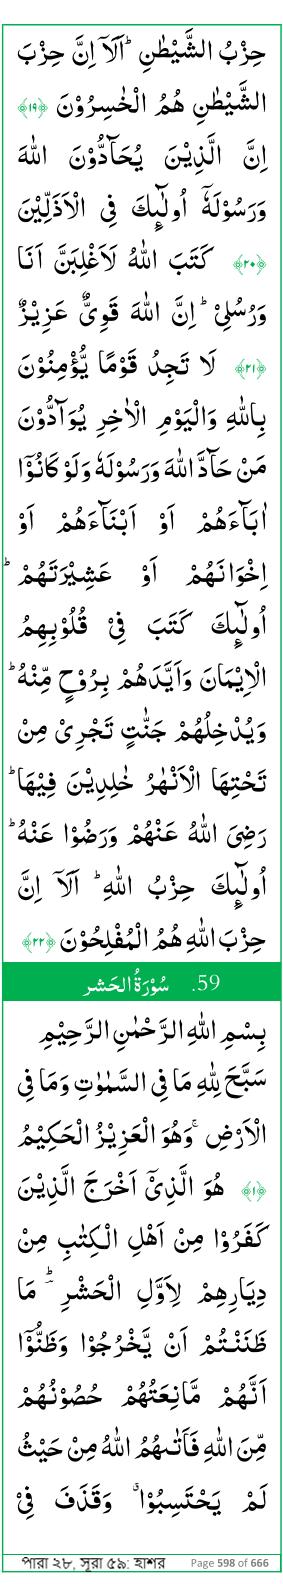 حِزْبُ الشَّيْطٰنِ ؕ اَلَاۤ اِنَّ حِزْبَ
الشَّيْطٰنِ هُمُ الْخٰسِرُوْنَ ﴿١٩﴾
اِنَّ الَّذِيْنَ يُحَآدُّوْنَ اللّٰهَ
وَرَسُوْلَهٗۤ اُولٰٓئِكَ فِى الْاَذَلِّيْنَ
﴿٢٠﴾ كَتَبَ اللّٰهُ لَاَغْلِبَنَّ اَنَا
وَرُسُلِىْ ؕ اِنَّ اللّٰهَ قَوِىٌّ عَزِيْزٌ
﴿٢١﴾ لَا تَجِدُ قَوْمًا يُّؤْمِنُوْنَ
بِاللّٰهِ وَالْيَوْمِ الْاٰخِرِ يُوَآدُّوْنَ
مَنْ حَآدَّ اللّٰهَ وَرَسُوْلَهٗ وَلَوْ كَانُوْۤا
اٰبَآءَهُمْ اَوْ اَبْنَآءَهُمْ اَوْ
اِخْوَانَهُمْ اَوْ عَشِيْرَتَهُمْ ؕ
اُولٰٓئِكَ كَتَبَ فِىْ قُلُوْبِهِمُ
الْاِيْمَانَ وَاَيَّدَهُمْ بِرُوْحٍ مِّنْهُ ؕ
وَيُدْخِلُهُمْ جَنّٰتٍ تَجْرِىْ مِنْ
تَحْتِهَا الْاَنْهٰرُ خٰلِدِيْنَ فِيْهَا ؕ
رَضِىَ اللّٰهُ عَنْهُمْ وَرَضُوْا عَنْهُ ؕ
اُولٰٓئِكَ حِزْبُ اللّٰهِ ؕ اَلَاۤ اِنَّ
حِزْبَ اللّٰهِ هُمُ الْمُفْلِحُوْنَ ﴿٢٢﴾
59. سُوْرَةُ الحَشر
بِسْمِ اللّٰهِ الرَّحْمٰنِ الرَّحِيْمِ
سَبَّحَ لِلّٰهِ مَا فِى السَّمٰوٰتِ وَمَا فِى
الْاَرْضِ ۚ وَهُوَ الْعَزِيْزُ الْحَكِيْمُ
﴿١﴾ هُوَ الَّذِىْۤ اَخْرَجَ الَّذِيْنَ
كَفَرُوْا مِنْ اَهْلِ الْكِتٰبِ مِنْ
دِيَارِهِمْ لِاَوَّلِ الْحَشْرِ ؔؕ مَا
ظَنَنْتُمْ اَنْ يَّخْرُجُوْا وَظَنُّوْۤا
اَنَّهُمْ مَّانِعَتُهُمْ حُصُوْنُهُمْ
مِّنَ اللّٰهِ فَاَتٰٮهُمُ اللّٰهُ مِنْ حَيْثُ
لَمْ يَحْتَسِبُوْا ۗ وَقَذَفَ فِىْ
পারা ২৮, সূরা ৫৯: হাশর Page 598 of 666